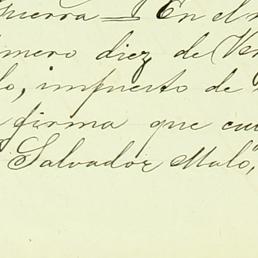 guerra — En el
mero diez de
lo, impuesto de
firma que
Salvador Malo,